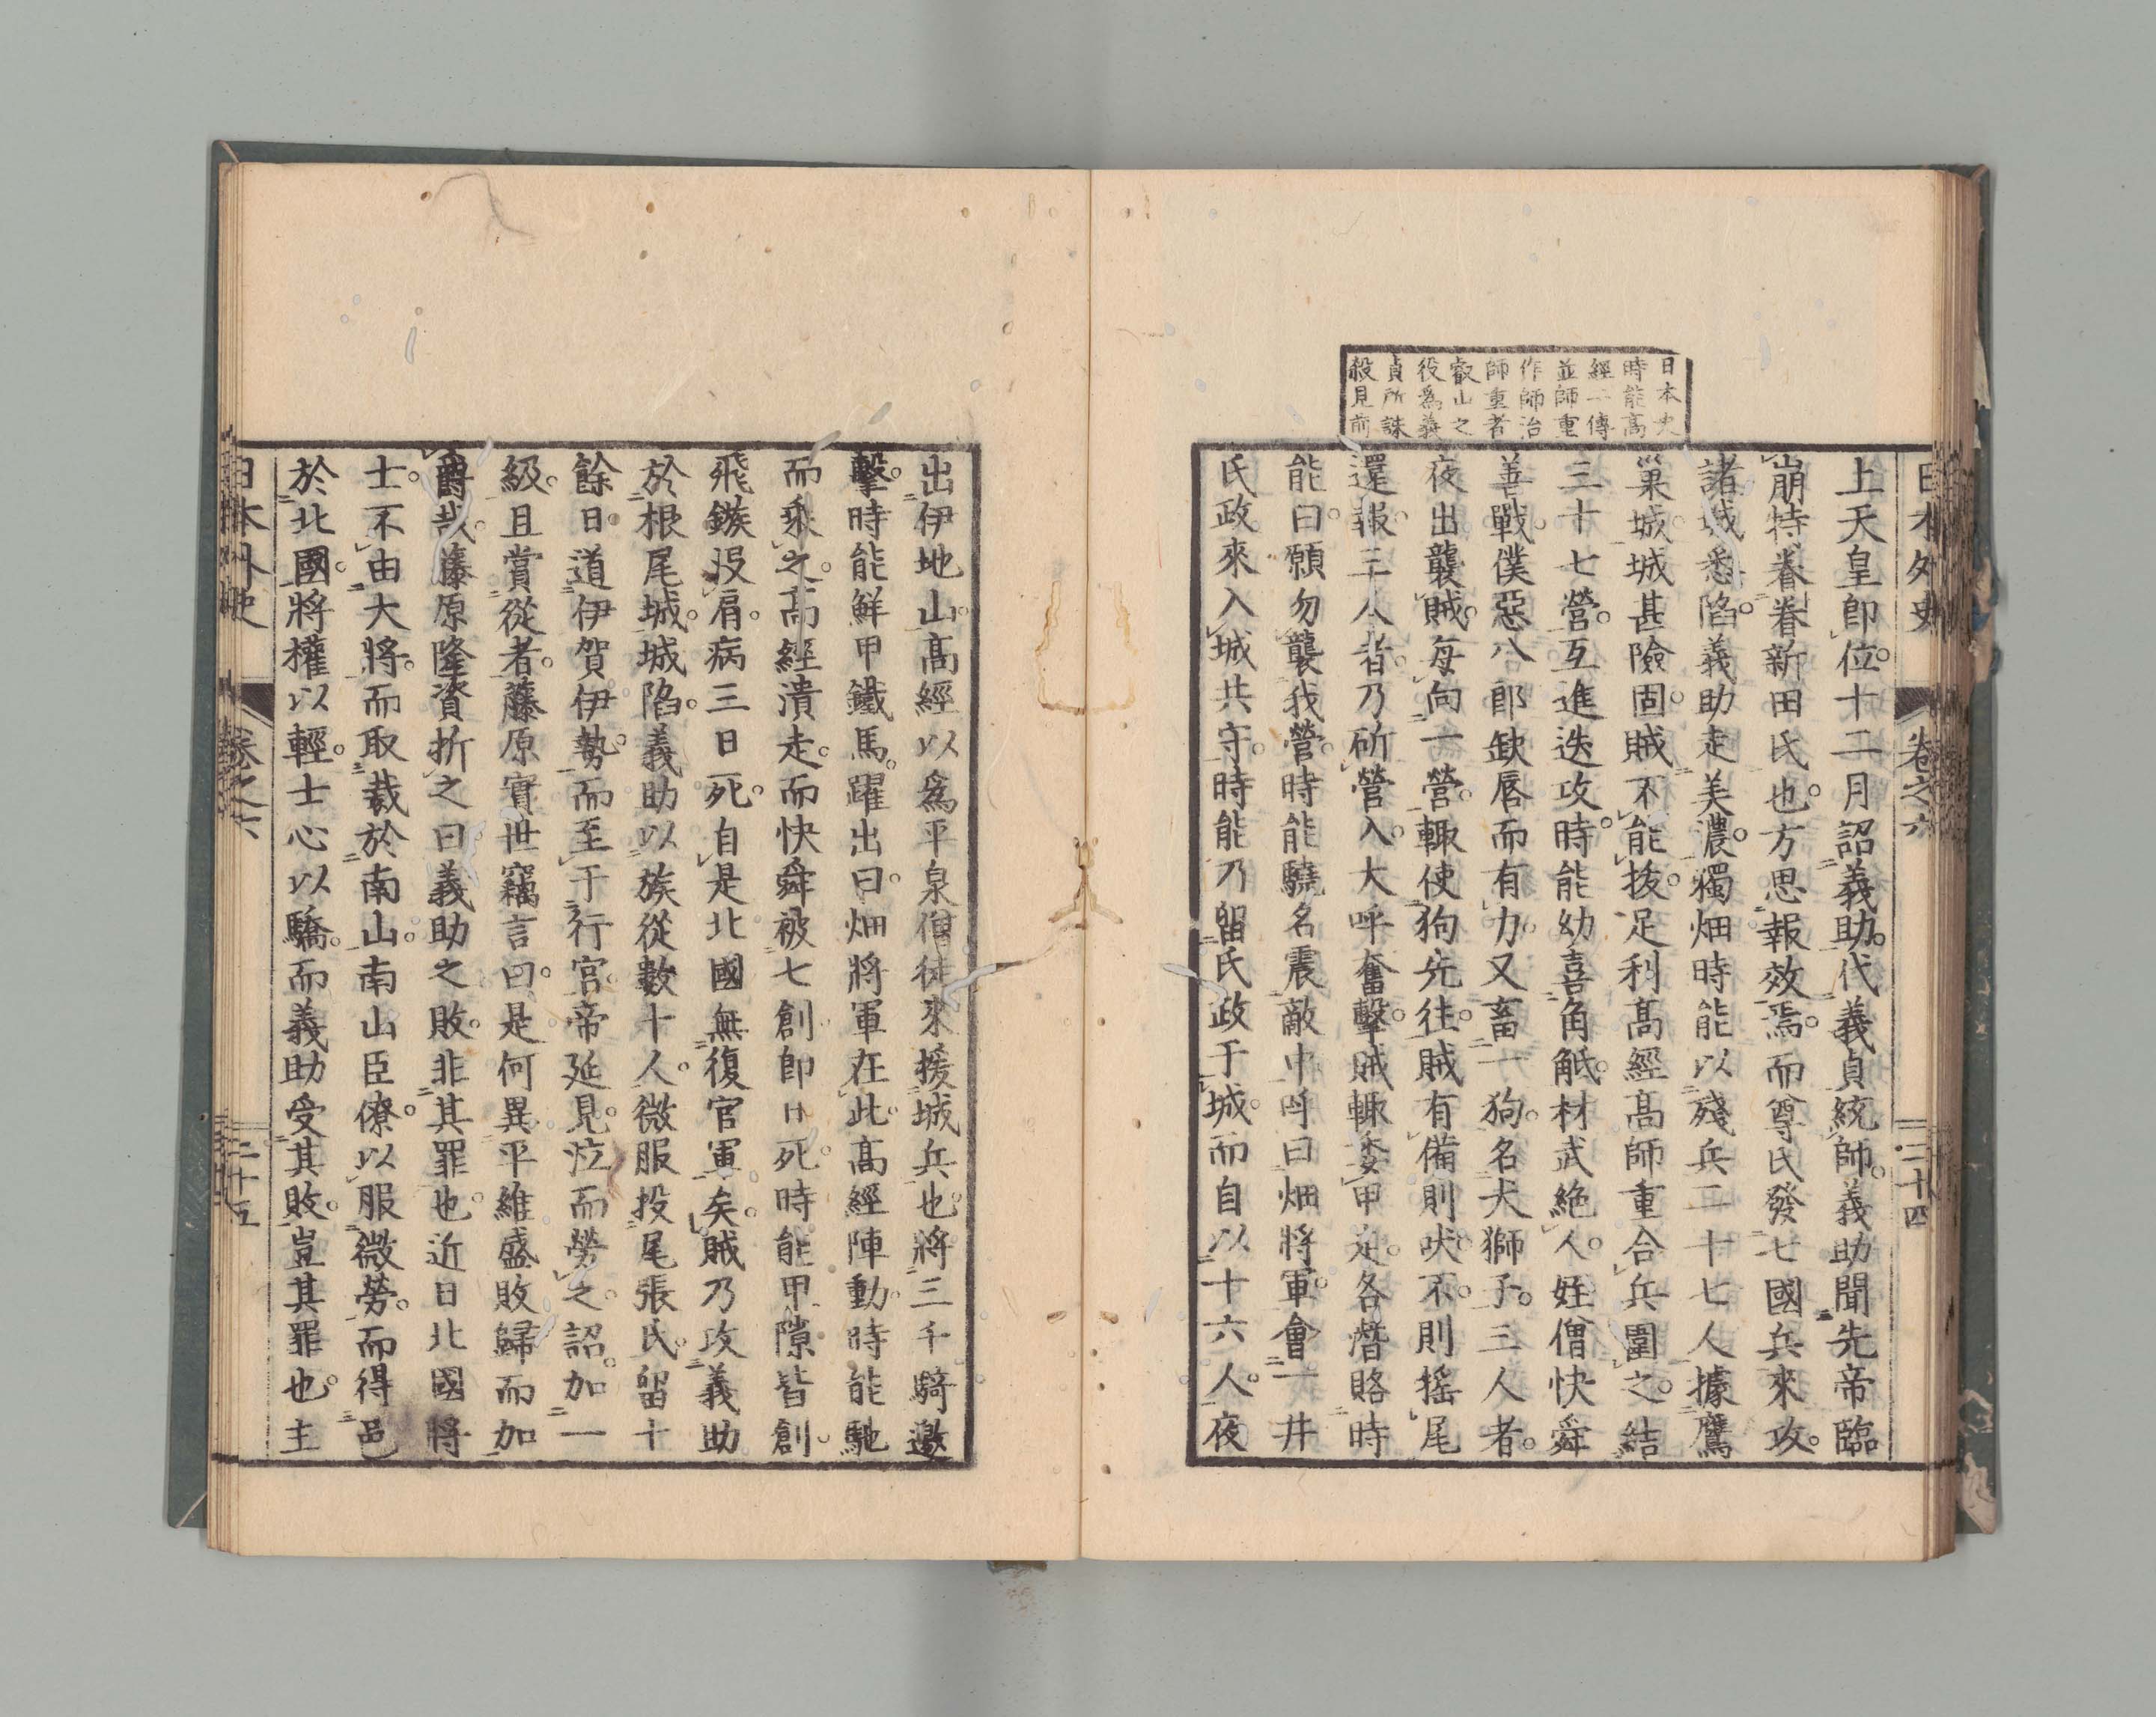 日本外史 卷之六 二十四
日本史
時能高
經二傳
並師重
作師治
師重者
叡山之
役爲義
貞所誅
殺見前
上天皇卽位。十二月詔義助。代義貞統師。義助聞先帝臨
崩特眷眷新田氏也。方思報效焉。而尊氏發七國兵來攻。
諸城悉陷。義助走美濃。獨畑時能以殘兵二十七人據鷹
巢城。城甚險固。賊不能拔。足利高經高師重合兵圍之。結
三十七營。互進迭攻。時能幼喜角觝。材武絶人。姪僧快舜
善戰。僕惡八郎缺唇而有力。又畜一狗。名犬獅子。三人者。
夜出襲賊。每向一營。輙使狗先往。賊有備則吠。不則搖尾
還報。三人者。乃斫營入。大呼奮擊。賊輙委甲走。各潛賂時
能曰。願勿襲我營。時能驍名震敵中。呼曰畑將軍。會一井
氏政來入城共守。時能乃留氏政于城。而自以十六人。夜
出伊地山。高經以爲平泉僧徒來援城兵也。將三千騎邀
擊。時能鮮甲鐵馬。躍出曰。畑將軍在此。高經陣動。時能馳
而乘之。高經潰走。而快舜被七創卽日死。時能甲隙皆創。
飛鏃沒肩。病三日死。自是北國無復官軍矣。賊乃攻義助
於根尾城。城陷。義助以族從數十人。微服投尾張氏。留十
餘日。道伊賀伊勢。而至于行宮。帝延見。泣而勞之。詔加一
級。且賞從者。藤原實世竊言曰。是何異平維盛敗歸而加
爵哉。藤原隆資折之曰。義助之敗。非其罪也。近日北國將
士。不由大將。而取裁於南山。南山臣僚。以服微勞。而得邑
於北國。將權以輕。士心以驕。而義助受其敗。豈其罪也。主
日本外史 卷之六 二十五